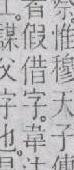 祭惟穆天子傳
者假借字。韋注
謀父字也。